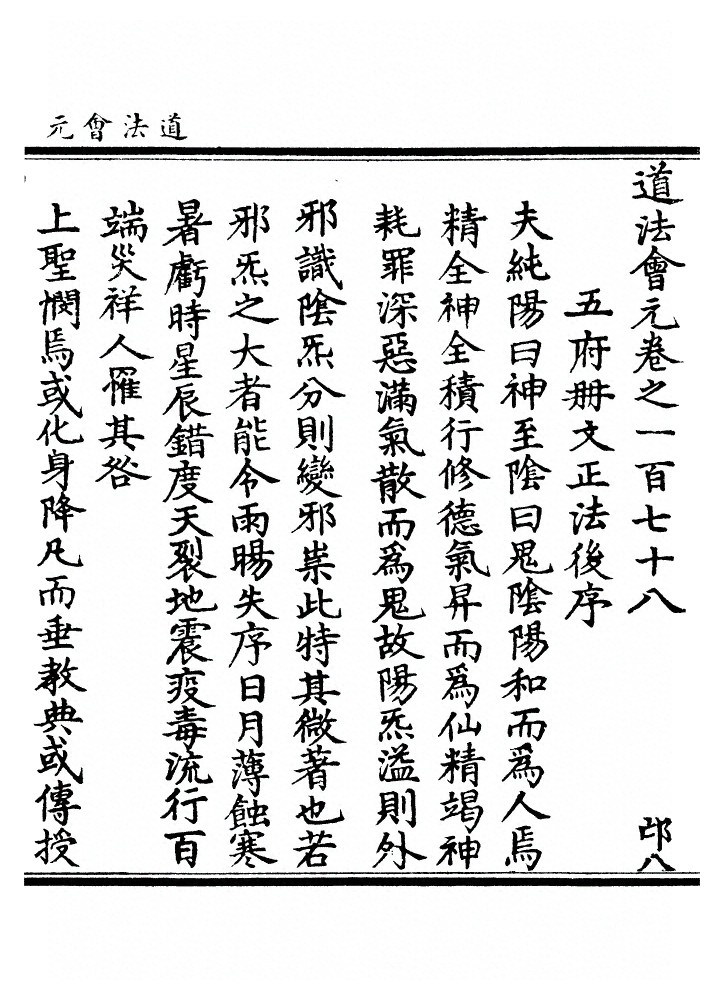 道法會元
道法會元卷之一百七十八 邙八
五府冊文正法後序
夫純陽曰神至陰曰鬼陰陽和而爲人焉
精全神全積行修德氣昇而爲仙精竭神
耗罪深惡滿氣散而爲鬼故陽炁溢則外
邪識陰炁分則變邪祟此特其微著也若
邪炁之大者能令雨暘失序日月薄蝕寒
暑虧時星辰錯度天裂地震疫毒流行百
端災祥人罹其咎
上聖憫焉或化身降凡而垂教典或傳授